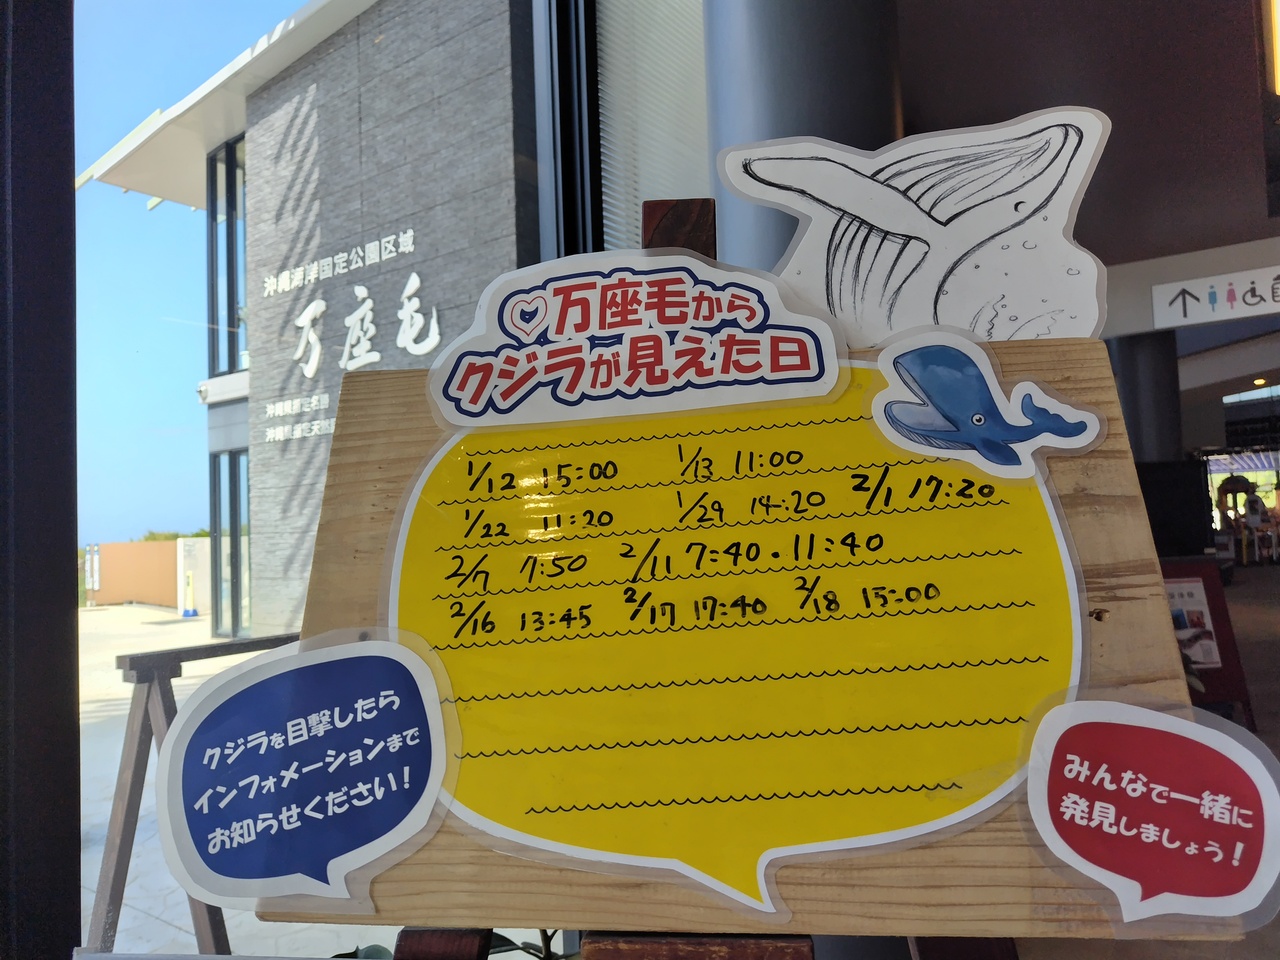 沖縄海岸国定公園区域
万座毛
万座毛から
クジラが見えた日
1/12 15:00 1/13 11:00
1/22 11:20 1/29 14:20 2/1 17:20
2/7 7:50 2/11 7:40・11:40
2/16 13:45 2/17 17:40 2/18 15:00
クジラを目撃したら
インフォメーションまで
お知らせください!
みんなで一緒に
発見しましょう!